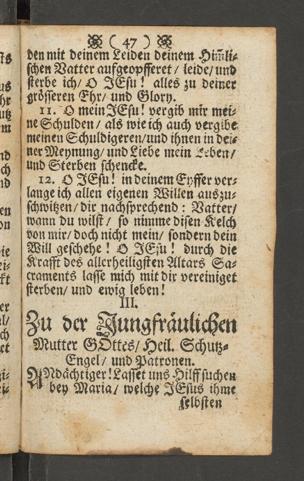 ( 47 )
den mit deinem Leiden deinem Him̃li-
schen Vatter aufgeopfferet / leide / und
sterbe ich / O JEsu! alles zu deiner
grösseren Ehr / und Glory.
11. O mein JEsu! vergib mir mei-
ne Schulden / als wie ich auch vergibe
meinen Schuldigeren / und ihnen in dei-
ner Meynung / und Liebe mein Leben /
und Sterben schencke.
12. O JEsu! in deinem Eyffer ver-
lange ich allen eigenen Willen auszu-
schwitzen / dir nachsprechend: Vatter /
wann du wilst / so nimme disen Kelch
von mir / doch nicht mein / sondern dein
Will geschehe! O JEsu! durch die
Krafft des allerheiligsten Altars Sa-
craments lasse mich mit dir vereiniget
sterben / und ewig leben!
III.
Zu der Jungfräulichen
Mutter GOttes / Heil. Schutz-
Engel / und Patronen.
ANdächtiger! Lasset uns Hilff suchen
bey Maria / welche JEsus ihme
selbsten